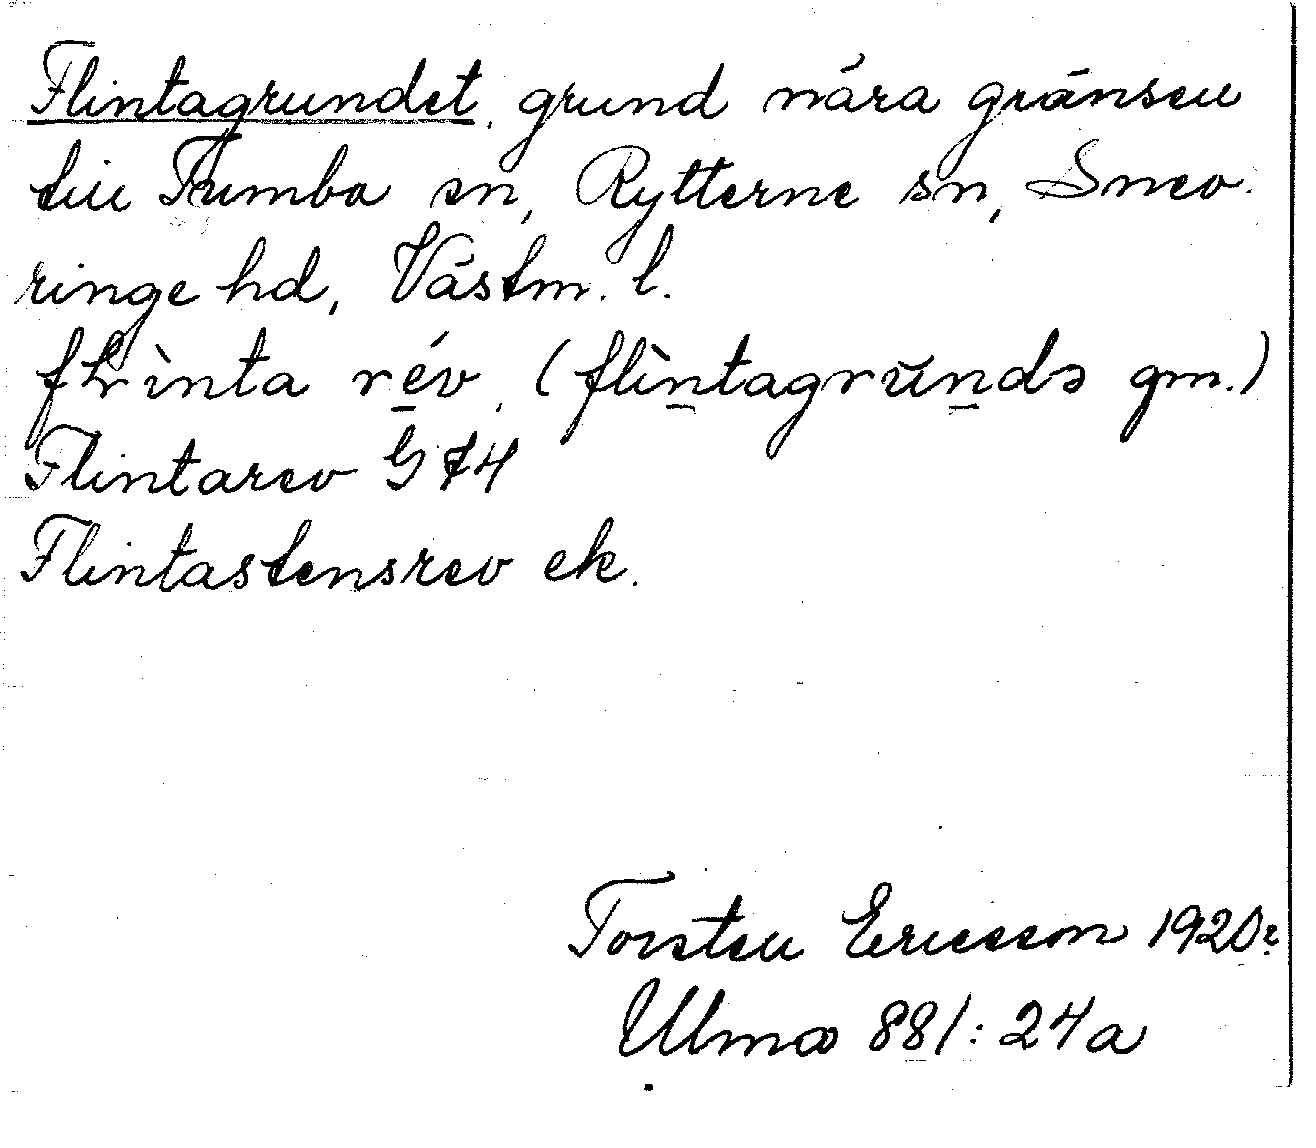 Flintagrundet, grund nära gränsen
till Tumbo sn, Rytterne sn, Snev-
ringe hd, Västm. l.
flrìnta rév, (flìntagrŭndə gm.)
Flintarev G 74
Flintastensrev ek.
Torsten Ericsson 1920
Ulma 881: 24a